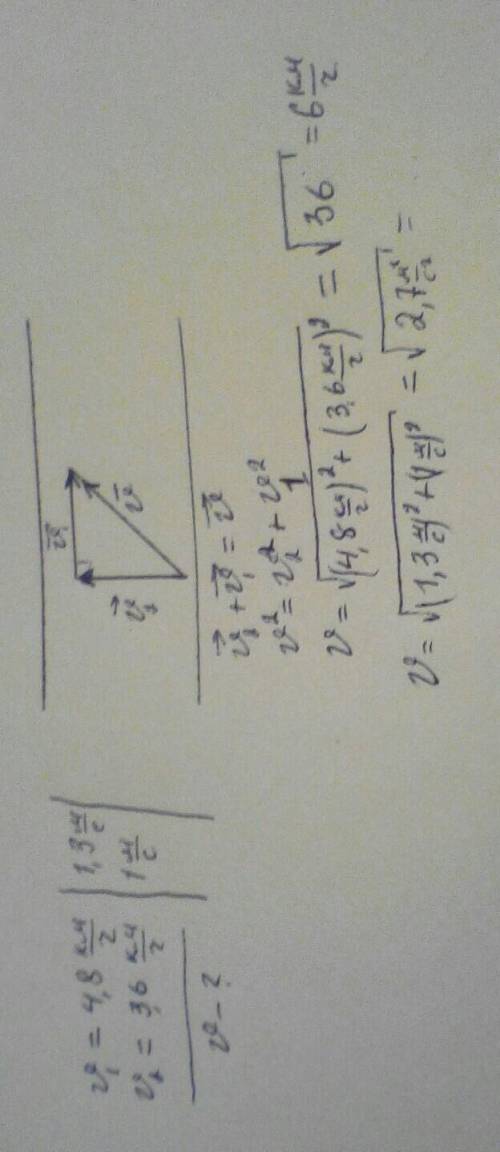 v₁ = 4,8 км/г | 1,3 м/с
v₂ = 3,6 км/г | 1 м/с
v - ?
v⃗₁
v⃗₂
v⃗
v⃗₂ + v⃗₁ = v⃗
v² = v₂² + v₁²
v = √((4,8 км/г)² + (3,6 км/г)²) = √36 = 6 км/г
v = √((1,3 м/с)² + (1 м/с)²) = √(2,7 м²/с²) =